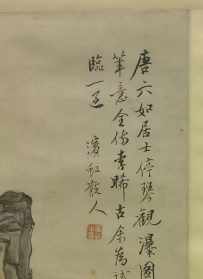 唐六如居士停琴觀瀑圖
筆意全仿李晞古余為
臨一過 濱虹散人